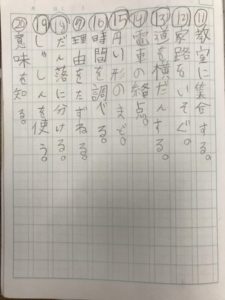 ⑪教室に集合する。
⑫家路をいそぐ。
⑬道を横だんする。
⑭電車の終点。
⑮円い形のまど。
⑯時間を調べる。
⑰理由をたずねる。
⑱だん落に分ける。
⑲じしんを使う。
⑳意味を知る。